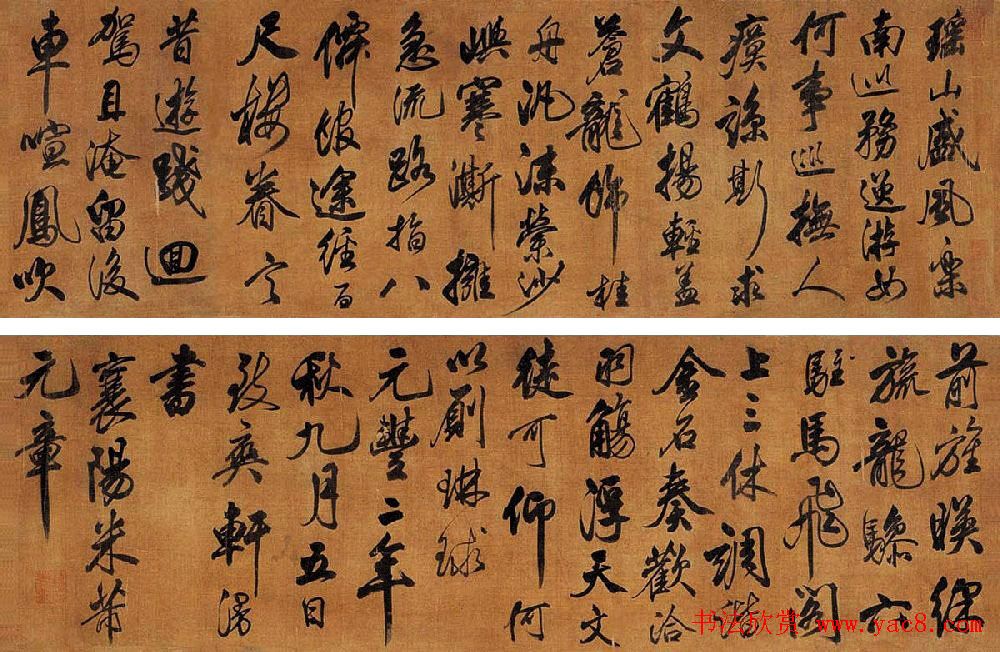 瑶山盛風樂
南巡務逸游如
何事巡撫人
瘼諒斯求
文鶴揚輕蓋
蒼龍飾桂
舟汎沫縈沙
嶼寒澌擁
急流路指八
僊館途經百
尺樓眷言
昔遊踐迴
駕且淹留後
車喧鳳吹
前旌暎綵
旒龍驂六
駐馬飛閣
上三休調諧
金石奏歡洽
羽觴浮天文
徒可仰何
以厠琳球
元豐二年
秋九月五日
致爽軒漫
書
襄陽米芾
元章
书法欣赏 www.yac8.com